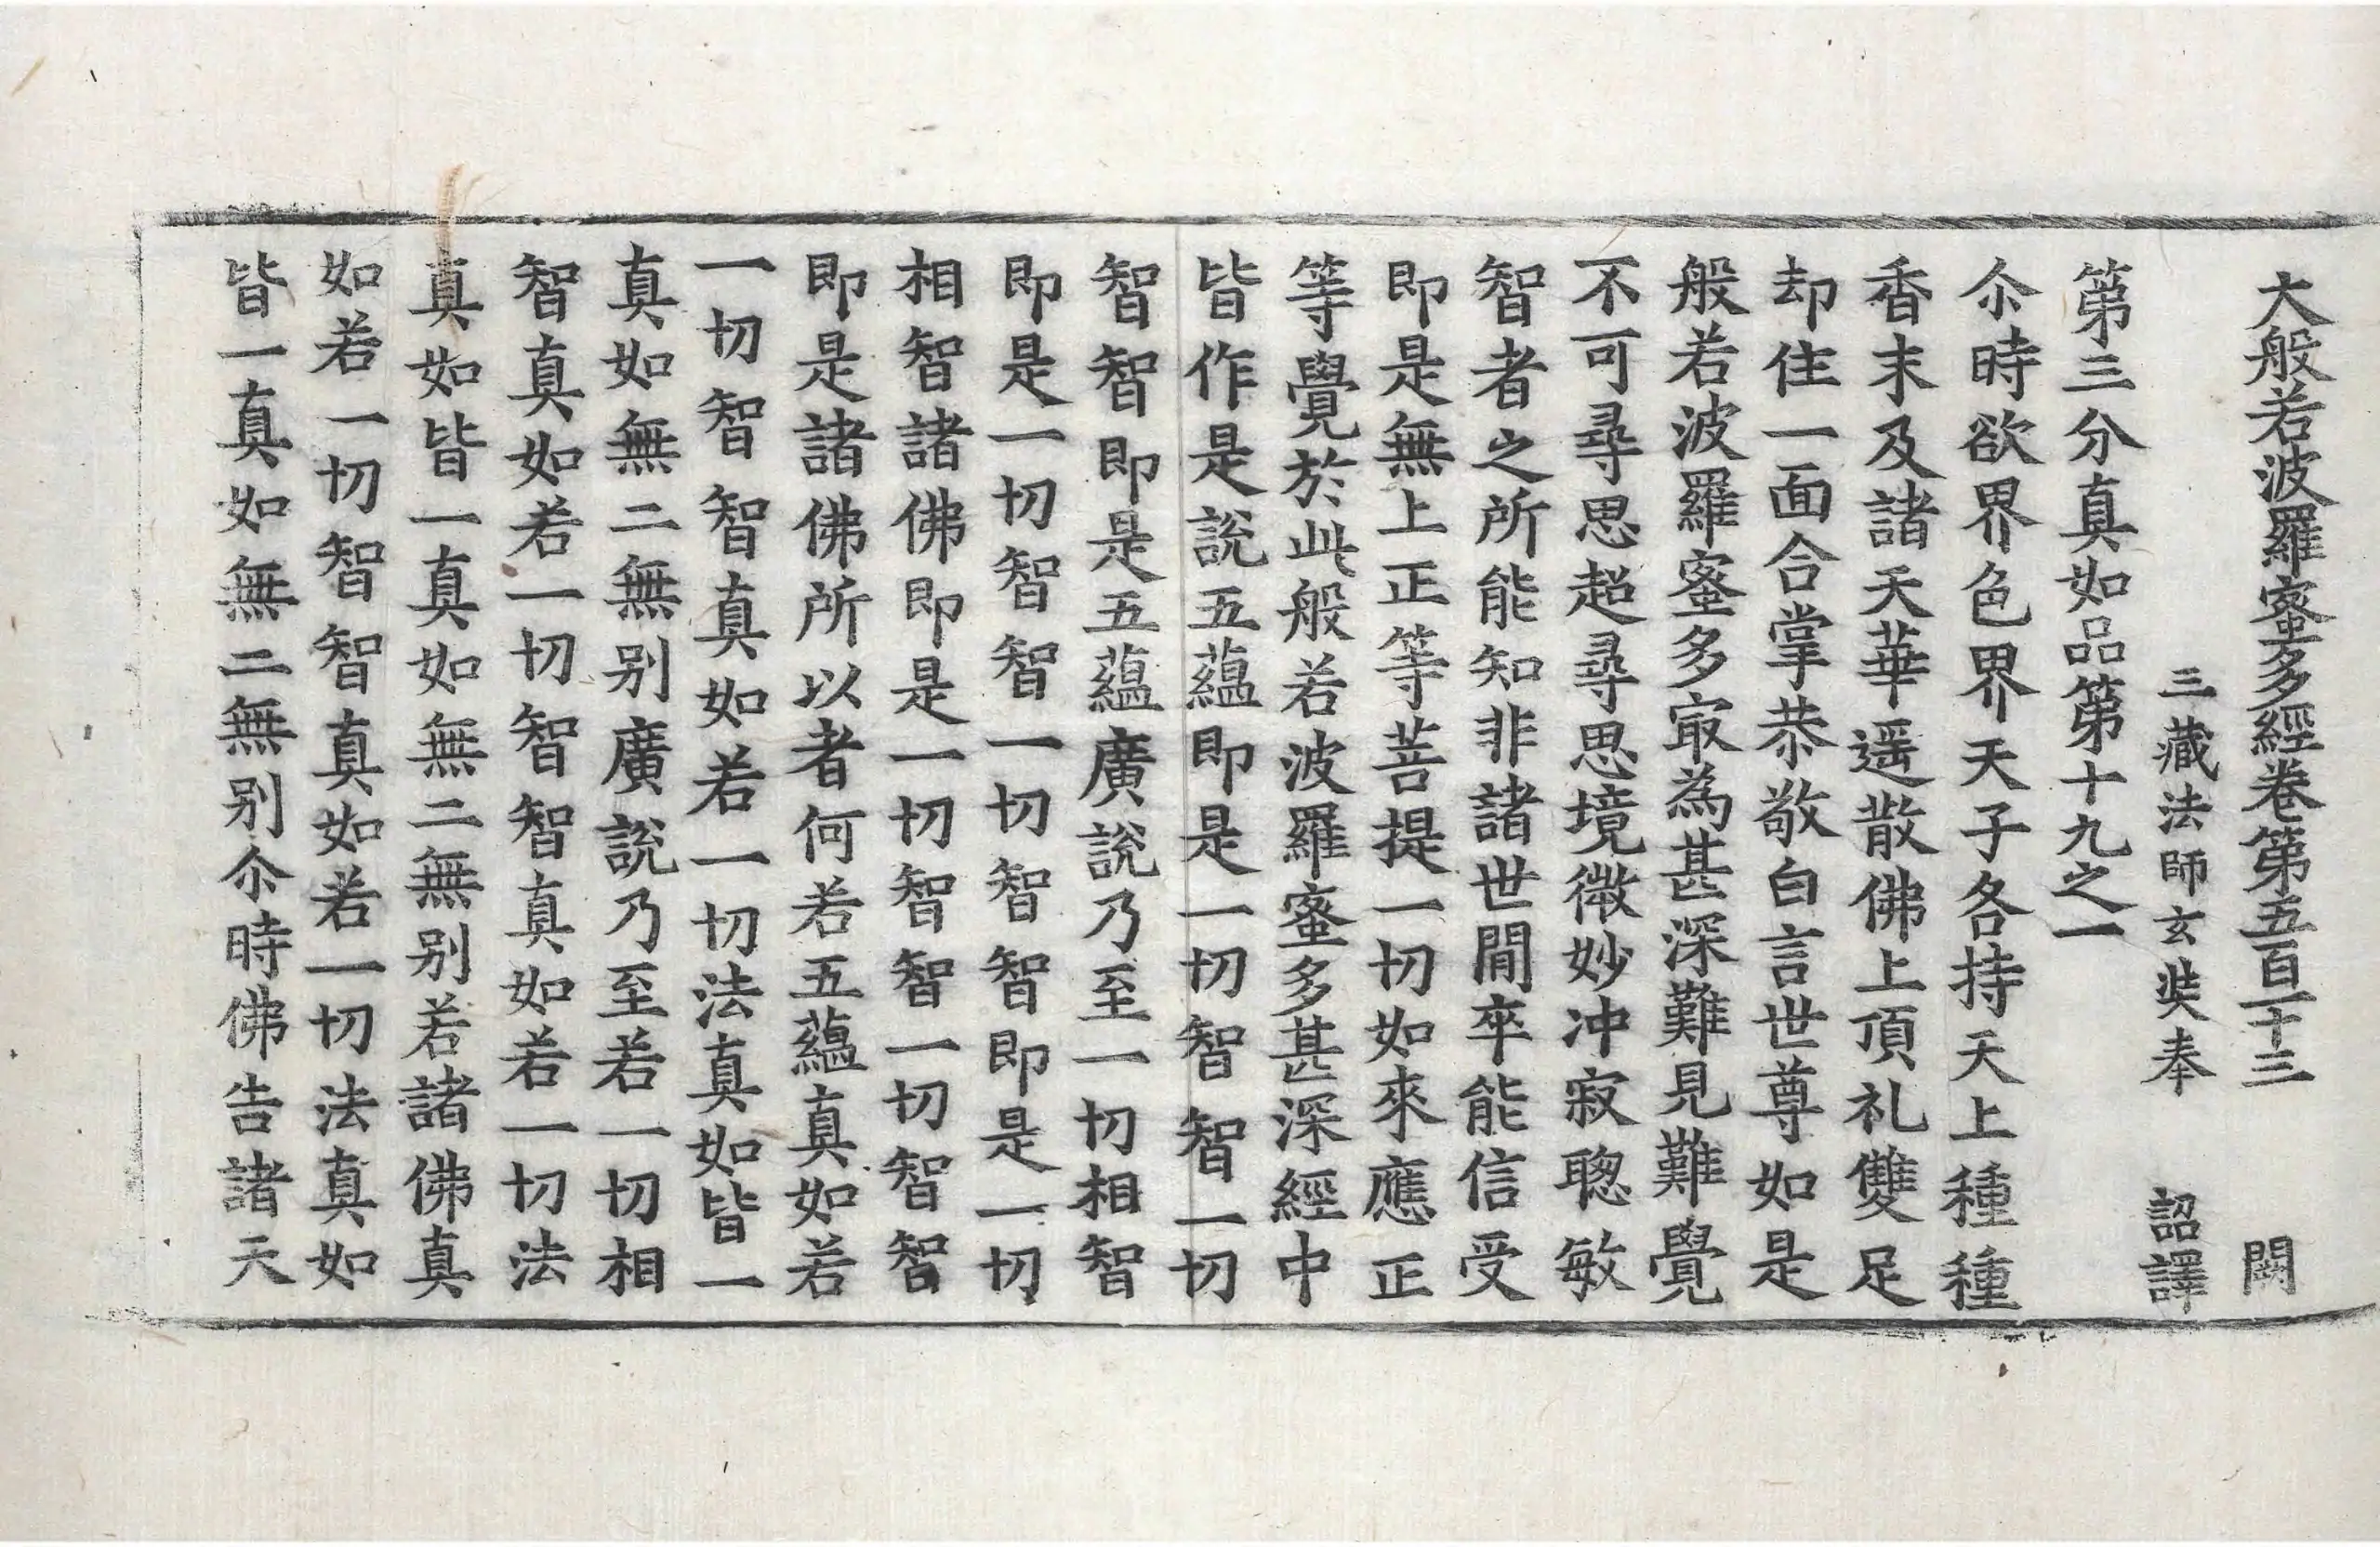 大般若波羅蜜多經卷第五百一十三 闕
三藏法師玄奘奉 詔譯
第三分真如品第十九之一
尒時欲界色界天子各持天上種種
香末及諸天華遥散佛上頂礼雙足
却住一面合掌恭敬白言世尊如是
般若波羅蜜多㝡為甚深難見難覺
不可尋思超尋思境微妙冲寂聦敏
智者之所能知非諸世閒卒能信受
即是無上正等菩提一切如來應正
等覺於此般若波羅蜜多甚深經中
皆作是說五蘊即是一切智智一切
智智即是五蘊廣說乃至一切相智
即是一切智智一切智智即是一切
相智諸佛即是一切智智一切智智
即是諸佛所以者何若五蘊真如若
一切智智真如若一切法真如皆一
真如無二無别廣說乃至若一切相
智真如若一切智智真如若一切法
真如皆一真如無二無别若諸佛真
如若一切智智真如若一切法真如
皆一真如無二無别尒時佛告諸天